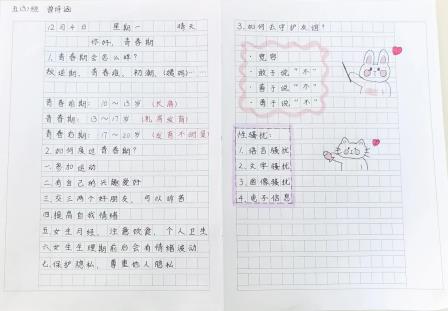 五(3)班
12月4日 星期一 晴天
你好,青春期
1.青春期会怎么样?
叛逆期、青春痘、初潮、
青春前期:10~13岁(长高)
青春期:13~17岁(乳房发育)
青春后期:17~20岁(发育不明显)
2.如何度过青春期?
一.参加运动
二.有自己的兴趣爱好
三.交三两个好朋友,可以聊
四.提高自我情绪
五.女生月经,注意饮食,个人卫生
六.女生生理期前后会有情绪波动
七.保护隐私,尊重他人隐私
3.如何去守护友谊?
·宽容
·敢于说“不”
·勇于说“不”
·勇于说“不”
性骚扰:
1.语言骚扰
2.文字骚扰
3.图像骚扰
4.电子信息